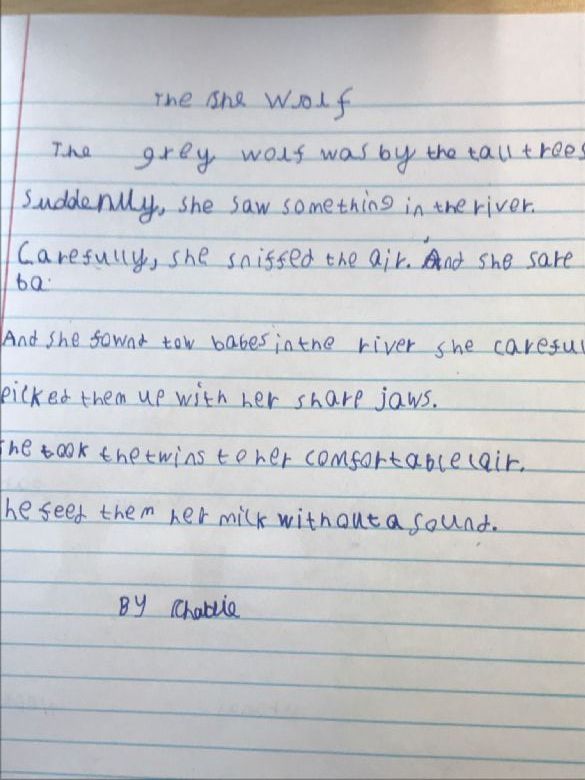 The She Wolf
The grey wolf was by the tall trees
Suddenlly, she saw something in the river.
Carefully, she sniffed the air. And she sare
ba
And she fownd tow babes in the river she careful
picked them up with her sharp jaws.
he took the twins to her comfortable lair.
he feed them her milk without a sound.
BY Charlie